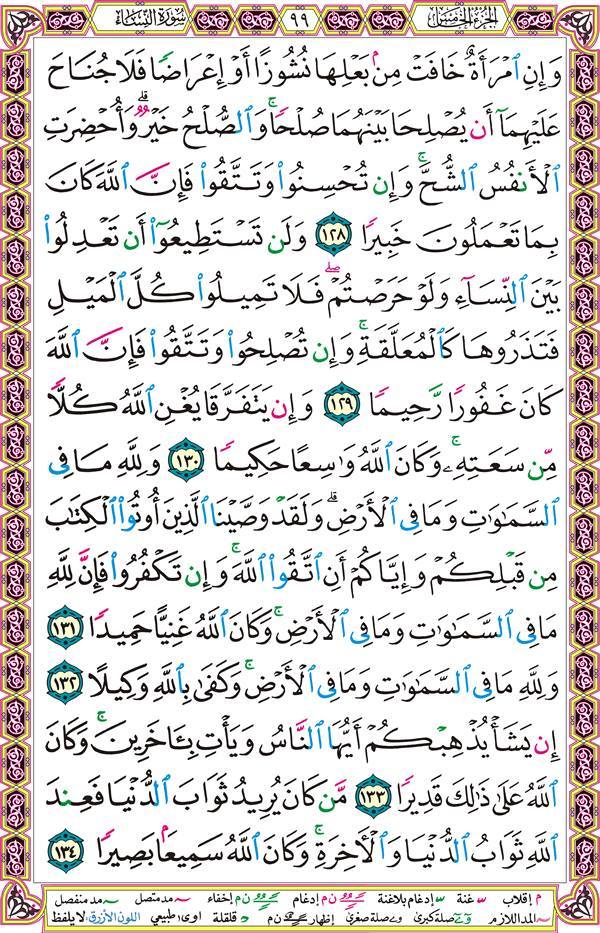 الجزء الخامس ٩٩ سورة النساء
وَإِنِ ٱمْرَأَةٌ خَافَتْ مِنۢ بَعْلِهَا نُشُوزًا أَوْ إِعْرَاضًا فَلَا جُنَاحَ
عَلَيْهِمَآ أَن يُصْلِحَا بَيْنَهُمَا صُلْحًا ۚ وَٱلصُّلْحُ خَيْرٌ ۗ وَأُحْضِرَتِ
ٱلْأَنفُسُ ٱلشُّحَّ ۚ وَإِن تُحْسِنُوا۟ وَتَتَّقُوا۟ فَإِنَّ ٱللَّهَ كَانَ
بِمَا تَعْمَلُونَ خَبِيرًا ١٢٨ وَلَن تَسْتَطِيعُوٓا۟ أَن تَعْدِلُوا۟
بَيْنَ ٱلنِّسَآءِ وَلَوْ حَرَصْتُمْ ۖ فَلَا تَمِيلُوا۟ كُلَّ ٱلْمَيْلِ
فَتَذَرُوهَا كَٱلْمُعَلَّقَةِ ۚ وَإِن تُصْلِحُوا۟ وَتَتَّقُوا۟ فَإِنَّ ٱللَّهَ
كَانَ غَفُورًا رَّحِيمًا ١٢٩ وَإِن يَتَفَرَّقَا يُغْنِ ٱللَّهُ كُلًّا
مِّن سَعَتِهِۦ ۚ وَكَانَ ٱللَّهُ وَٰسِعًا حَكِيمًا ١٣٠ وَلِلَّهِ مَا فِى
ٱلسَّمَٰوَٰتِ وَمَا فِى ٱلْأَرْضِ ۗ وَلَقَدْ وَصَّيْنَا ٱلَّذِينَ أُوتُوا۟ ٱلْكِتَٰبَ
مِن قَبْلِكُمْ وَإِيَّاكُمْ أَنِ ٱتَّقُوا۟ ٱللَّهَ ۚ وَإِن تَكْفُرُوا۟ فَإِنَّ لِلَّهِ
مَا فِى ٱلسَّمَٰوَٰتِ وَمَا فِى ٱلْأَرْضِ ۚ وَكَانَ ٱللَّهُ غَنِيًّا حَمِيدًا ١٣١
وَلِلَّهِ مَا فِى ٱلسَّمَٰوَٰتِ وَمَا فِى ٱلْأَرْضِ ۚ وَكَفَىٰ بِٱللَّهِ وَكِيلًا ١٣٢
إِن يَشَأْ يُذْهِبْكُمْ أَيُّهَا ٱلنَّاسُ وَيَأْتِ بِـَٔاخَرِينَ ۚ وَكَانَ
ٱللَّهُ عَلَىٰ ذَٰلِكَ قَدِيرًا ١٣٣ مَّن كَانَ يُرِيدُ ثَوَابَ ٱلدُّنْيَا فَعِندَ
ٱللَّهِ ثَوَابُ ٱلدُّنْيَا وَٱلْأَخِرَةِ ۚ وَكَانَ ٱللَّهُ سَمِيعًۢا بَصِيرًا ١٣٤
م إقلاب غنة إدغام بلاغنة ن م إدغام ن م إخفاء مد متصل مد منفصل
المد اللازم صلة كبرى صلة صغرى إظهار ن م قلقلة اوى طبيعي اللون الأزرق: لا يلفظ